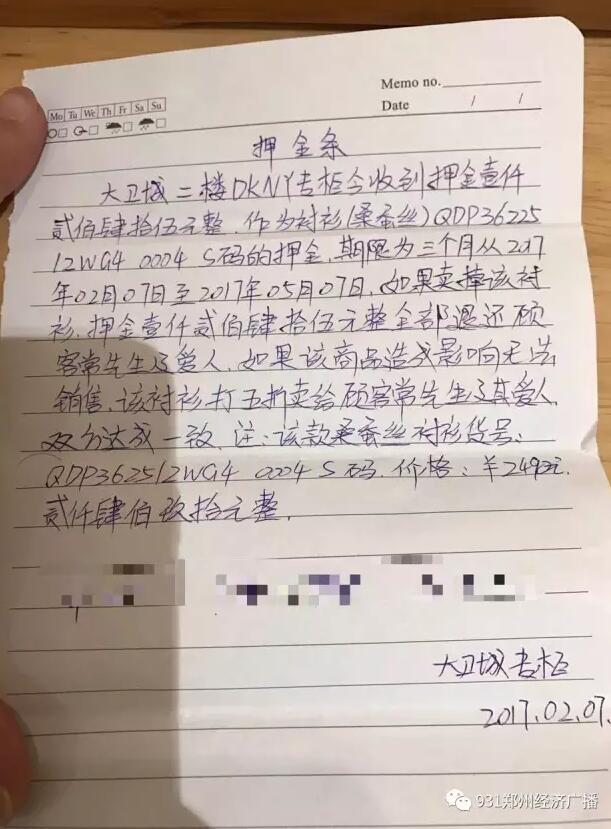 Memo no.
Mo Tu We Th Fr Sa Su
Date / /
押金条
大卫城二楼DKNY专柜今收到押金壹仟
贰佰肆拾伍元整.作为衬衫(桑蚕丝)QDP36225
12WG4 0004 S码的押金,期限为三个月从2017
年02月07日至2017年05月07日.如果卖掉该衬
衫.押金壹仟贰佰肆拾伍元整全部退还顾
客常先生及爱人.如果该商品造成影响无法
销售.该衬衫打五折卖给顾客常先生及其爱人
双方达成一致.注:该款桑蚕丝衬衫货号:
QDP362512WG4 0004 S码.价格:¥2490元.
贰仟肆佰玖拾元整.
大卫城专柜
2017.02.07.
931郑州经济广播